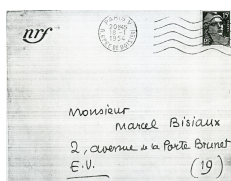 nrf
PARIS V
1954
Monsieur
Marcel Bisiaux
2, avenue de la Porte Brunet
E.V. (19)